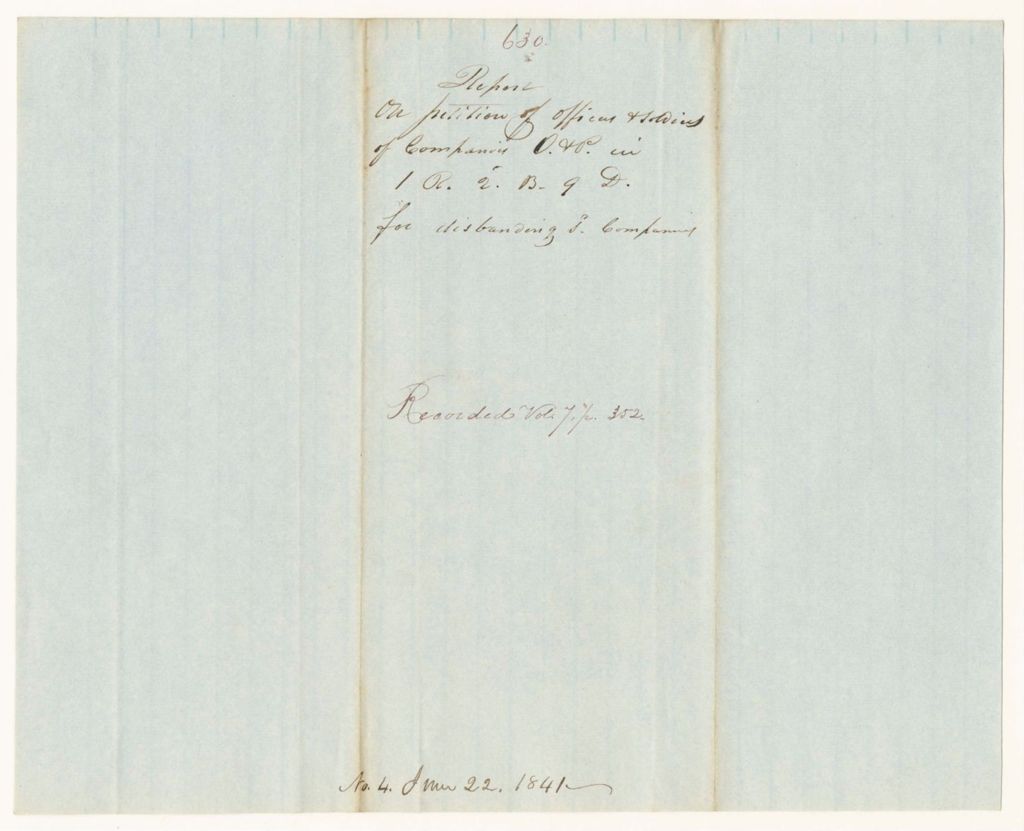 630.
Report
On petition of officers & soldiers
of Companies O. & P. in
1 R. 2. B. 9 D.
for disbanding s. Companies
Recorded Vol. 7. p. 352.
No. 4. June 22. 1841